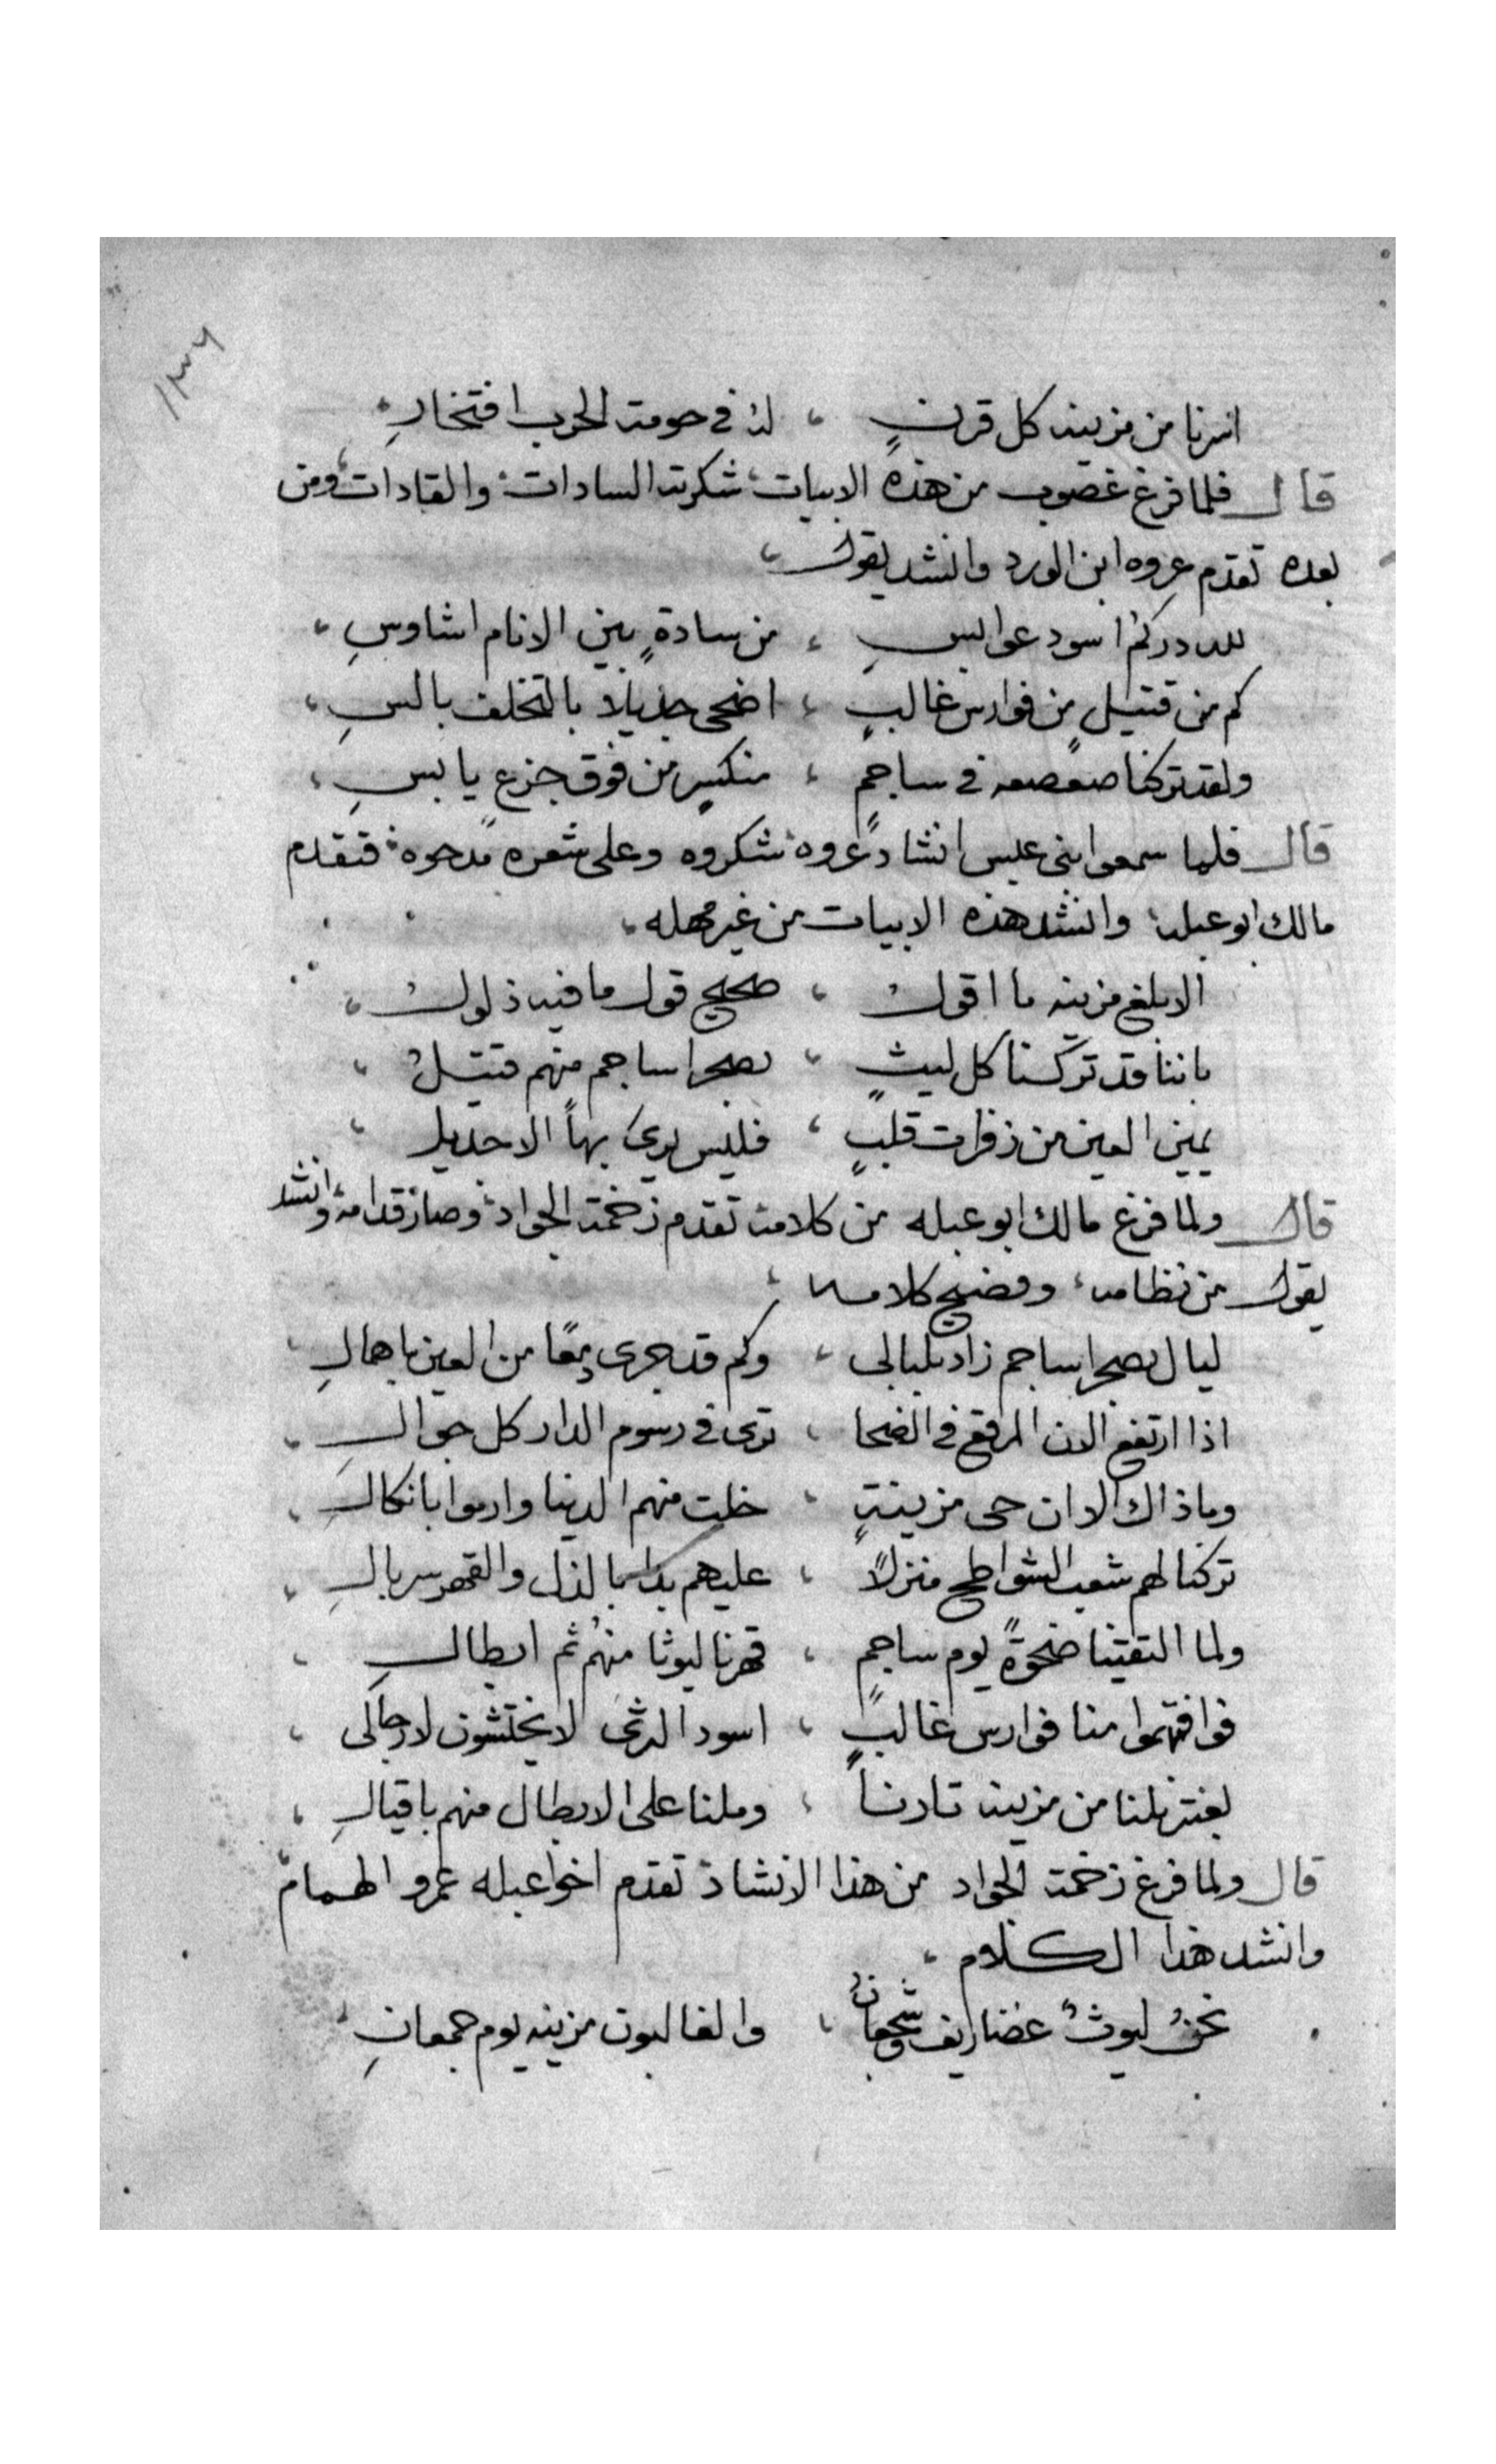 ١٣٦
اسرنا من مزينه كل قرنٍ ، لهُ في حومة الحرب افتخارِ
قال فلما فرغ غصوب من هذه الابيات شكرته السادات والقادات ومن
بعده تقدم عروه ابن الورد وانشد يقول ،
لله دركمُ اسود عوابسِ ، من سادةٍ بين الانام اشاوسِ ،
كم من قتيلٍ من فوارس غالبٍ ، اضحى جديلا بالتخلف بالسِ ،
ولقد تركنا صعصعه في ساجمٍ ، منكسٍ من فوق جزع يابسِ ،
قال فلما سمعوا بنى عبس انشاد عروه شكروه وعلى شعره مدحوه فتقدم
مالك ابو عبله وانشد هذه الابيات من غير مهله .
الا بلغ مزينه ما اقولُ ، صحيح قول ما فيه ذلولُ ،
باننا قد تركنا كل ليثٍ ، بصحرا ساجم منهم قتيلُ ،
يمين العين من زفرات قلبٍ ، فليس يرى بها الا جديل ،
قال ولما فرغ مالك ابو عبله من كلامه تقدم زخمة الجواد وصار قدامه وانشد
يقول من نظامه وفضيح كلامه ،
ليال بصحرا ساجم زاد بلبالى ، وكم قد جرى دمعًا من العين باهمالِ
اذا ارتفع الان المرقع في الضحا ، ترى في رسوم الدار كل جوالِ ،
وما ذاك الا ان حى مزينةٍ ، خلت منهم الدينا وارموا بانكالِ ،
تركنا لهم شعب الشواطح منزلاً ، عليهم بالذل والقهر سربالِ ،
ولما التقينا ضحوةً يوم ساجمٍ ، قهرنا ليوثا منهُم ثم ابطالِ ،
فوافتهموا منا فوارس غالبٍ ، اسود الشرى لا يختشون لارجالى ،
بعنتر نلنا من مزينه ثارنا ، وملنا على الابطال منهم باقيالِ ،
قال ولما فرغ زخمة الجواد من هذا الانشاد تقدم اخو عبله عمرو الهمام
وانشد هذا الكلام ،
نحنُ ليوثُ غضاريف وشجعانُ ، والغالبون مزينه يوم جمعانِ